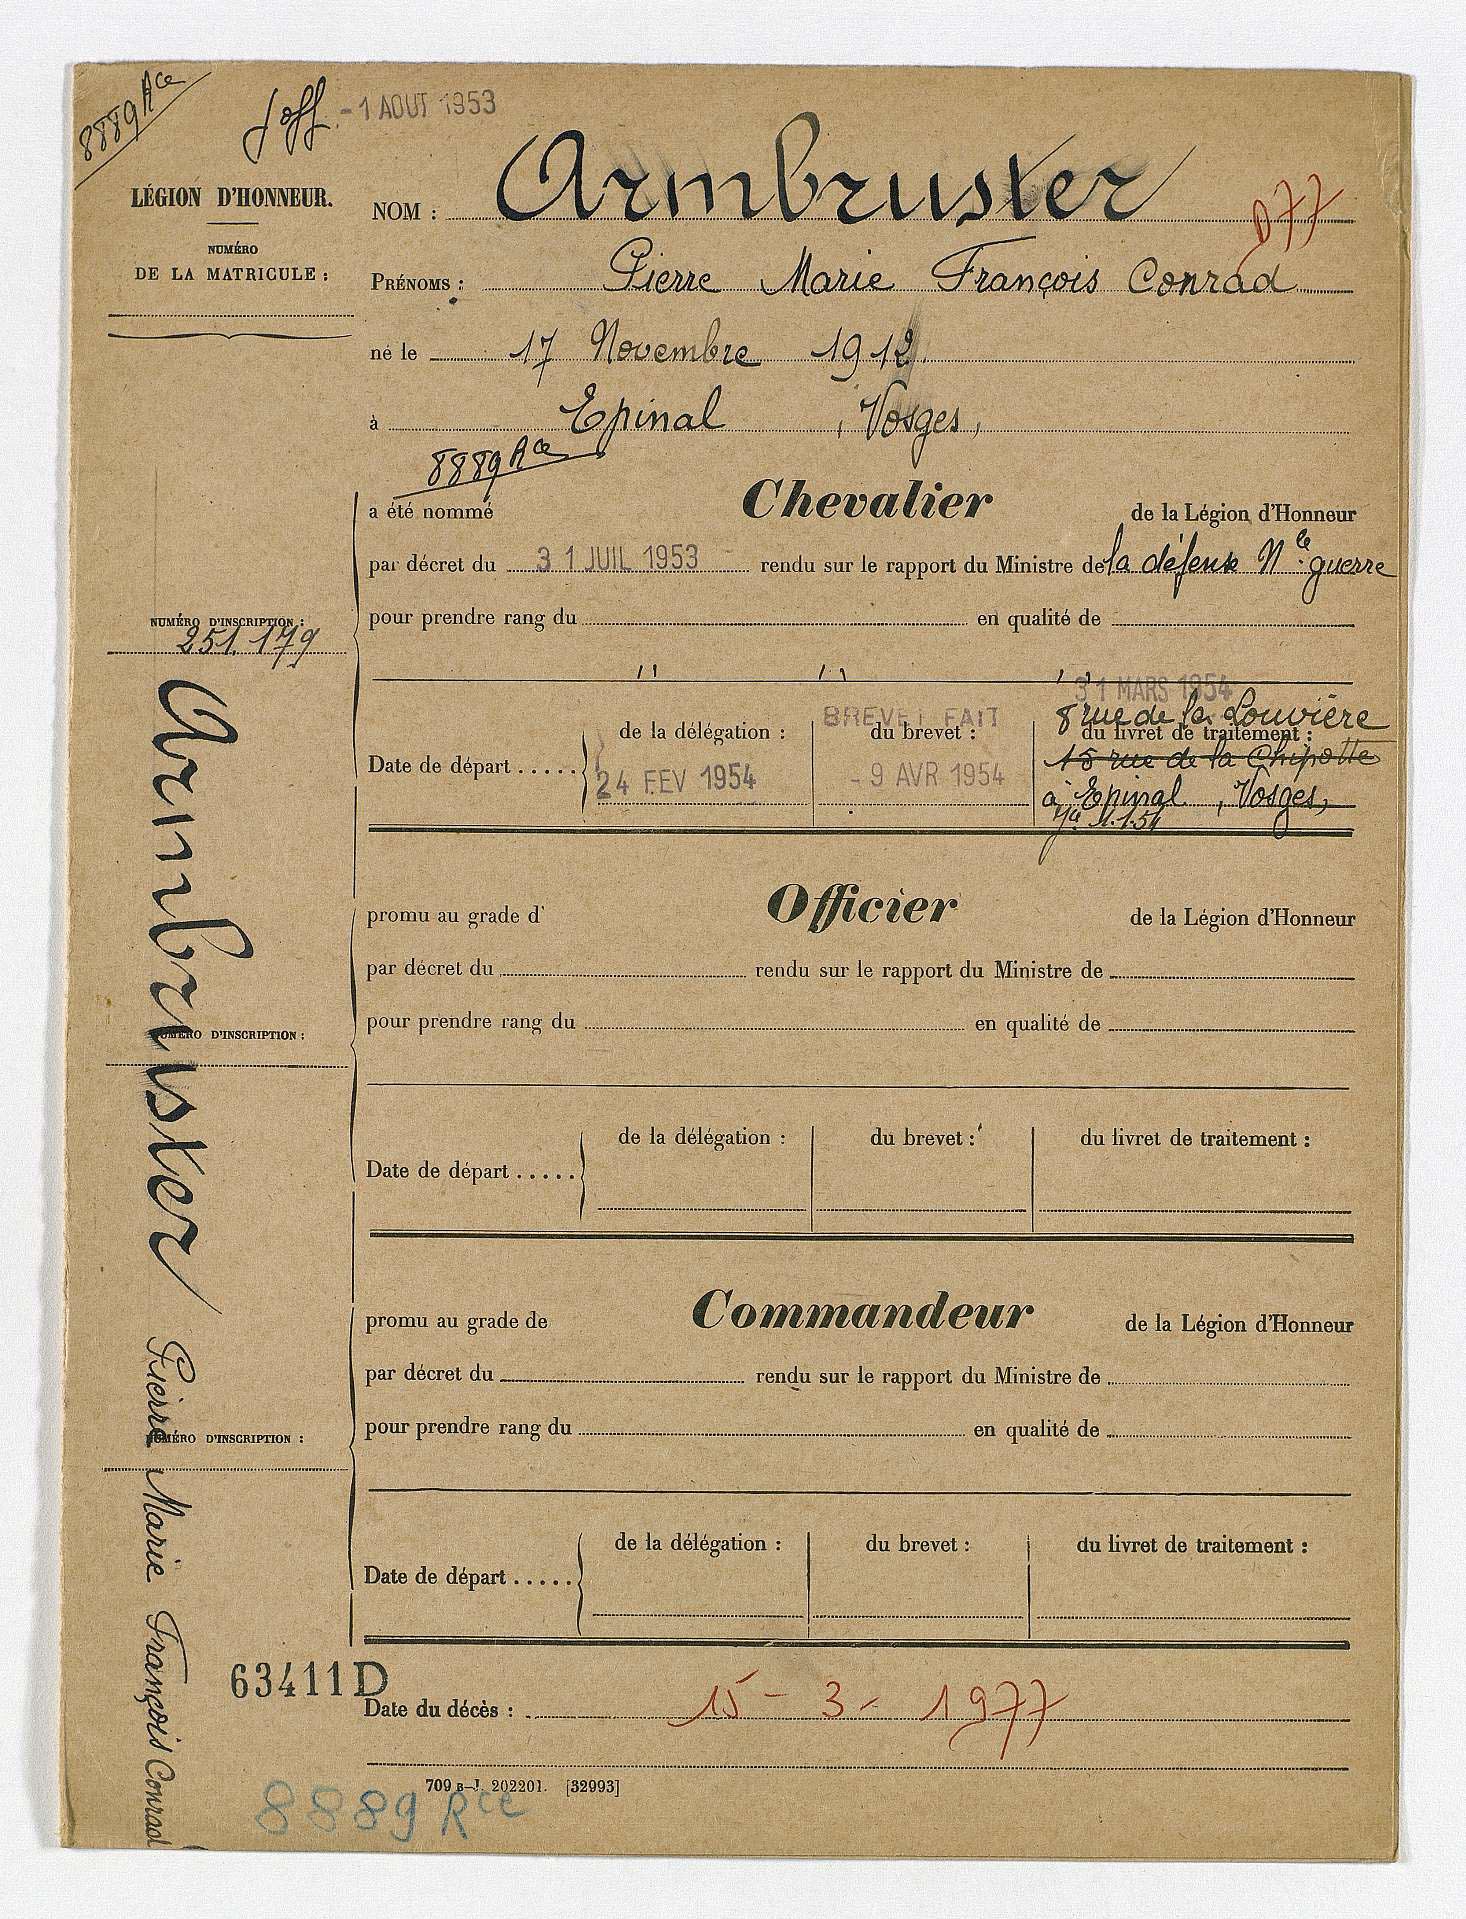 8889 Rce
J.off. - 1 AOUT 1953
LÉGION D'HONNEUR.
NUMÉRO
DE LA MATRICULE :
NOM : Armbruster
D77
PRÉNOMS : Pierre Marie François Conrad
né le 17 Novembre 1912
à Epinal, Vosges,
8889 Rce
a été nommé Chevalier de la Légion d'Honneur
par décret du 31 JUIL 1953 rendu sur le rapport du Ministre de la défense Nle guerre
pour prendre rang du en qualité de
NUMÉRO D'INSCRIPTION :
251.179
" " "
31 MARS 1954
BREVET FAIT
8 rue de la Louvière
de la délégation : du brevet : du livret de traitement :
15 rue de la Chipotte
Date de départ ..... 24 FEV 1954 - 9 AVR 1954
à Epinal, Vosges,
1.1.54
promu au grade d' Officier de la Légion d'Honneur
par décret du rendu sur le rapport du Ministre de
pour prendre rang du en qualité de
NUMÉRO D'INSCRIPTION :
de la délégation : du brevet : du livret de traitement :
Date de départ .....
promu au grade de Commandeur de la Légion d'Honneur
par décret du rendu sur le rapport du Ministre de
pour prendre rang du en qualité de
NUMÉRO D'INSCRIPTION :
de la délégation : du brevet : du livret de traitement :
Date de départ .....
Armbruster Pierre Marie François Conrad
63411D
Date du décès : 15 - 3 - 1977
709 B-J. 202201. [32993]
8889 Rce